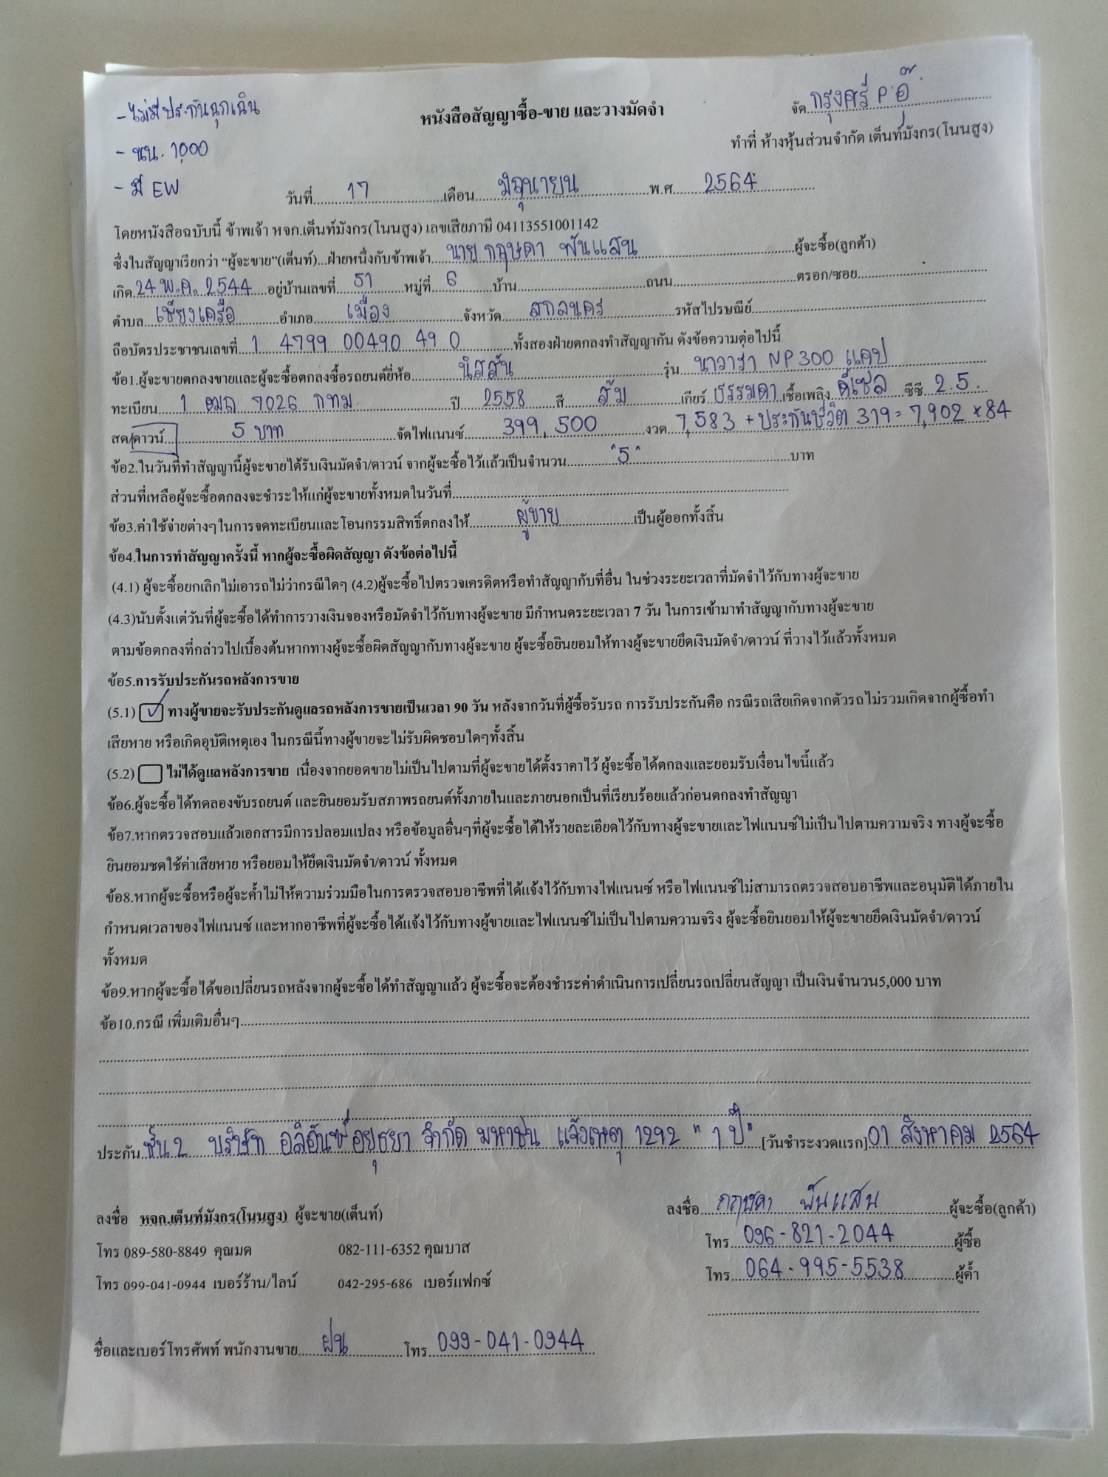 - ไม่มีประกันฉุกเฉิน
- นน. 1,000
- มี EW
จัด กรุงศรี P'อี๊
หนังสือสัญญาซื้อ-ขาย และวางมัดจำ
ทำที่ ห้างหุ้นส่วนจำกัด เต็นท์มังกร(โนนสูง)
วันที่ 17 เดือน มิถุนายน พ.ศ. 2564
โดยหนังสือฉบับนี้ ข้าพเจ้า หจก.เต็นท์มังกร(โนนสูง) เลขเสียภาษี 04113551001142
ซึ่งในสัญญาเรียกว่า "ผู้จะขาย"(เต็นท์)...ฝ่ายหนึ่งกับข้าพเจ้า นาย กฤษดา พันแสน ผู้จะซื้อ(ลูกค้า)
เกิด 24 พ.ค. 2544 อยู่บ้านเลขที่ 51 หมู่ที่ 6 บ้าน ถนน ตรอก/ซอย
ตำบล เชียงเครือ อำเภอ เมือง จังหวัด สกลนคร รหัสไปรษณีย์
ถือบัตรประชาชนเลขที่ 1 4799 00490 49 0 ทั้งสองฝ่ายตกลงทำสัญญากัน ดังข้อความต่อไปนี้
ข้อ1.ผู้จะขายตกลงขายและผู้จะซื้อตกลงซื้อรถยนต์ยี่ห้อ นิสสัน รุ่น นาวาร่า NP 300 แคป
ทะเบียน 1 ฒฌ 7026 กทม ปี 2558 สี ส้ม เกียร์ ธรรมดา เชื้อเพลิง ดีเซล ซีซี 2.5
สด/ดาวน์ 5 บาท จัดไฟแนนซ์ 399,500 งวด 7,583 + ประกันชีวิต 319 = 7,902 x 84
ข้อ2.ในวันที่ทำสัญญานี้ผู้จะขายได้รับเงินมัดจำ/ดาวน์ จากผู้จะซื้อไว้แล้วเป็นจำนวน "5" บาท
ส่วนที่เหลือผู้จะซื้อตกลงจะชำระให้แก่ผู้จะขายทั้งหมดในวันที่
ข้อ3.ค่าใช้จ่ายต่างๆในการจดทะเบียนและโอนกรรมสิทธิ์ตกลงให้ ผู้ขาย เป็นผู้ออกทั้งสิ้น
ข้อ4.ในการทำสัญญาครั้งนี้ หากผู้จะซื้อผิดสัญญา ดังข้อต่อไปนี้
(4.1) ผู้จะซื้อยกเลิกไม่เอารถไม่ว่ากรณีใดๆ (4.2)ผู้จะซื้อไปตรวจเครดิตหรือทำสัญญากับที่อื่น ในช่วงระยะเวลาที่มัดจำไว้กับทางผู้จะขาย
(4.3)นับตั้งแต่วันที่ผู้จะซื้อได้ทำการวางเงินจองหรือมัดจำไว้กับทางผู้จะขาย มีกำหนดระยะเวลา 7 วัน ในการเข้ามาทำสัญญากับทางผู้จะขาย
ตามข้อตกลงที่กล่าวไปเบื้องต้นหากทางผู้จะซื้อผิดสัญญากับทางผู้จะขาย ผู้จะซื้อยินยอมให้ทางผู้จะขายยึดเงินมัดจำ/ดาวน์ ที่วางไว้แล้วทั้งหมด
ข้อ5.การรับประกันรถหลังการขาย
(5.1) ✓ ทางผู้ขายจะรับประกันดูแลรถหลังการขายเป็นเวลา 90 วัน หลังจากวันที่ผู้ซื้อรับรถ การรับประกันคือ กรณีรถเสียเกิดจากตัวรถไม่รวมเกิดจากผู้ซื้อทำ
เสียหาย หรือเกิดอุบัติเหตุเอง ในกรณีนี้ทางผู้ขายจะไม่รับผิดชอบใดๆทั้งสิ้น
(5.2) ไม่ได้ดูแลหลังการขาย เนื่องจากยอดขายไม่เป็นไปตามที่ผู้จะขายได้ตั้งราคาไว้ ผู้จะซื้อได้ตกลงและยอมรับเงื่อนไขนี้แล้ว
ข้อ6.ผู้จะซื้อได้ทดลองขับรถยนต์ และยินยอมรับสภาพรถยนต์ทั้งภายในและภายนอกเป็นที่เรียบร้อยแล้วก่อนตกลงทำสัญญา
ข้อ7.หากตรวจสอบแล้วเอกสารมีการปลอมแปลง หรือข้อมูลอื่นๆที่ผู้จะซื้อได้ให้รายละเอียดไว้กับทางผู้จะขายและไฟแนนซ์ไม่เป็นไปตามความจริง ทางผู้จะซื้อ
ยินยอมชดใช้ค่าเสียหาย หรือยอมให้ยึดเงินมัดจำ/ดาวน์ ทั้งหมด
ข้อ8.หากผู้จะซื้อหรือผู้จะค้ำไม่ให้ความร่วมมือในการตรวจสอบอาชีพที่ได้แจ้งไว้กับทางไฟแนนซ์ หรือไฟแนนซ์ไม่สามารถตรวจสอบอาชีพและอนุมัติได้ภายใน
กำหนดเวลาของไฟแนนซ์ และหากอาชีพที่ผู้จะซื้อได้แจ้งไว้กับทางผู้ขายและไฟแนนซ์ไม่เป็นไปตามความจริง ผู้จะซื้อยินยอมให้ผู้จะขายยึดเงินมัดจำ/ดาวน์
ทั้งหมด
ข้อ9.หากผู้จะซื้อได้ขอเปลี่ยนรถหลังจากผู้จะซื้อได้ทำสัญญาแล้ว ผู้จะซื้อจะต้องชำระค่าดำเนินการเปลี่ยนรถเปลี่ยนสัญญา เป็นเงินจำนวน5,000 บาท
ข้อ10.กรณี เพิ่มเติมอื่นๆ
ประกัน ชั้น 2 บริษัท อลิอันซ์อยุธยา จำกัด มหาชน แจ้งเหตุ 1292 "1 ปี" [วันชำระงวดแรก] 01 สิงหาคม 2564
ลงชื่อ หจก.เต็นท์มังกร(โนนสูง) ผู้จะขาย(เต็นท์)
ลงชื่อ กฤษดา พันแสน ผู้จะซื้อ(ลูกค้า)
โทร 089-580-8849 คุณมด 082-111-6352 คุณบาส
โทร 096-821-2044 ผู้ซื้อ
โทร 099-041-0944 เบอร์ร้าน/ไลน์ 042-295-686 เบอร์แฟกซ์
โทร 064-995-5538 ผู้ค้ำ
ชื่อและเบอร์โทรศัพท์ พนักงานขาย ฝน โทร 099-041-0944